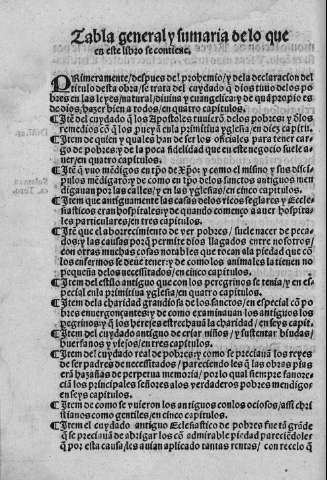 Tabla general y sumaria de lo que
en este libro se contiene.
PRimeramente/despues del prohemio/y dela declaracion del
titulo desta obra/se trata del cuydado q̃ dios tuuo delos po
bres en las leyes/natural/diuina y euangelica: y de quã propio es
de dios, hazer bien a todos/en quatro capitulos.
¶Itẽ del cuydado q̃ los Apostoles tuuierõ delos pobres: y ðlos
remedios cõ q̃ los pueyã enla primitiua ygleſia/en diez capitu.
¶Item de quien y quales han de ser los oficiales para tener car
go de pobres: y de la poca fidelidad que en este negocio suele a
uer/en quatro capitulos.
¶Itẽ q̃ uuo mẽdigos en tp̃o de xp̃o: y como el mismo y sus disci
pulos mẽdigarõ: y de como en tp̃o delos sanctos antiguos men
digauan por las calles/y en las ygleſias/en cinco capitulos.
¶Item que antiguamente las casas delos ricos seglares y Ecle
siasticos eran hospitales: y de quando començo a auer hospita
les particulares/en tres capitulos.
¶Itẽ que el aborrecimiento de ver pobres/ suele nacer de peca
dos: y las causas porq̃ permite dios llagados entre nosotros/
con otras muchas cosas notables que tocan ala piedad que cõ
los enfermos se deue tener: y de como los animales la tienen no
pequeña delos necessitados/en cinco capitulos.
¶Item del estilo antiguo que con los peregrinos se tenia/y en es
pecial enla primitiua ygleſia/en quatro capitulos.
¶Item dela charidad grandiosa de los sanctos/en especial cõ po
bres enuergonçantes: y de como examinauan los antiguos los
peregrinos: y q̃ los hereges estrechauã la charidad/en seys capit.
¶Item del cuydado antiguo de criar niños/y sustentar biudas/
huerfanos y viejos/en tres capitulos.
¶Item del cuydado real de pobres: y como se preciauã los reyes
de ser padres de necessitados/pareciendo les q̃ las obras pias
erã hazañas de perpetua memoria/por lo qual siempre fauore
ciã los principales señores alos verdaderos pobres mendigos
en seys capitulos.
¶Item de como se vuieron los antiguos conlos ociosos/assi chri
stianos como gentiles, en cinco capitulos.
¶Item el cuydado antiguo Eclesiastico de pobres fue tã grãde
q̃ se preciauã de abrigar los cõ admirable piedad pareciẽdoles
q̃ por esta causa/les auian aplicado tantas rentas/ con recelo q̃